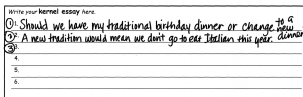 Write your kernel essay here.
① 1. Should we have my traditional birthday dinner or change to a new dinner
② 2. A new tradition would mean we don't go to eat Italian this year.
③ 3.
4.
5.
6.